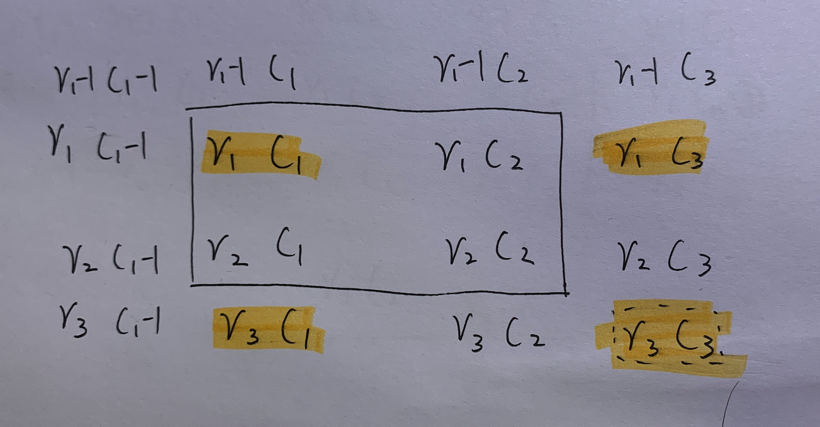 r₁-1 C₁-1 r₁-1 C₁ r₁-1 C₂ r₁-1 C₃
r₁ C₁-1 r₁ C₁ r₁ C₂ r₁ C₃
r₂ C₁-1 r₂ C₁ r₂ C₂ r₂ C₃
r₃ C₁-1 r₃ C₁ r₃ C₂ r₃ C₃